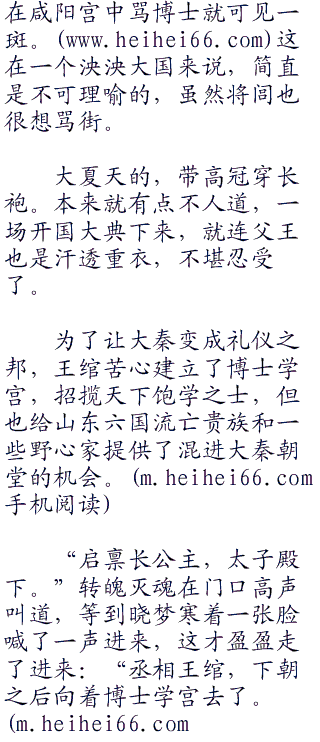 在咸阳宫中骂博士就可见一
斑。(www.heihei66.com)这
在一个泱泱大国来说，简直
是不可理喻的，虽然将闾也
很想骂街。
大夏天的，带高冠穿长
袍。本来就有点不人道，一
场开国大典下来，就连父王
也是汗透重衣，不堪忍受
了。
为了让大秦变成礼仪之
邦，王绾苦心建立了博士学
宫，招揽天下饱学之士，但
也给山东六国流亡贵族和一
些野心家提供了混进大秦朝
堂的机会。(m.heihei66.com
手机阅读)
“启禀长公主，太子殿
下。”转魄灭魂在门口高声
叫道，等到晓梦寒着一张脸
喊了一声进来，这才盈盈走
了进来：“丞相王绾，下朝
之后向着博士学宫去了。
(m.heihei66.com